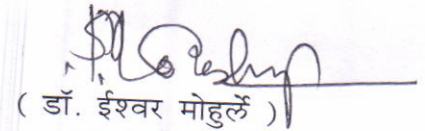 ( डॉ. ईश्वर मोहुर्ले )